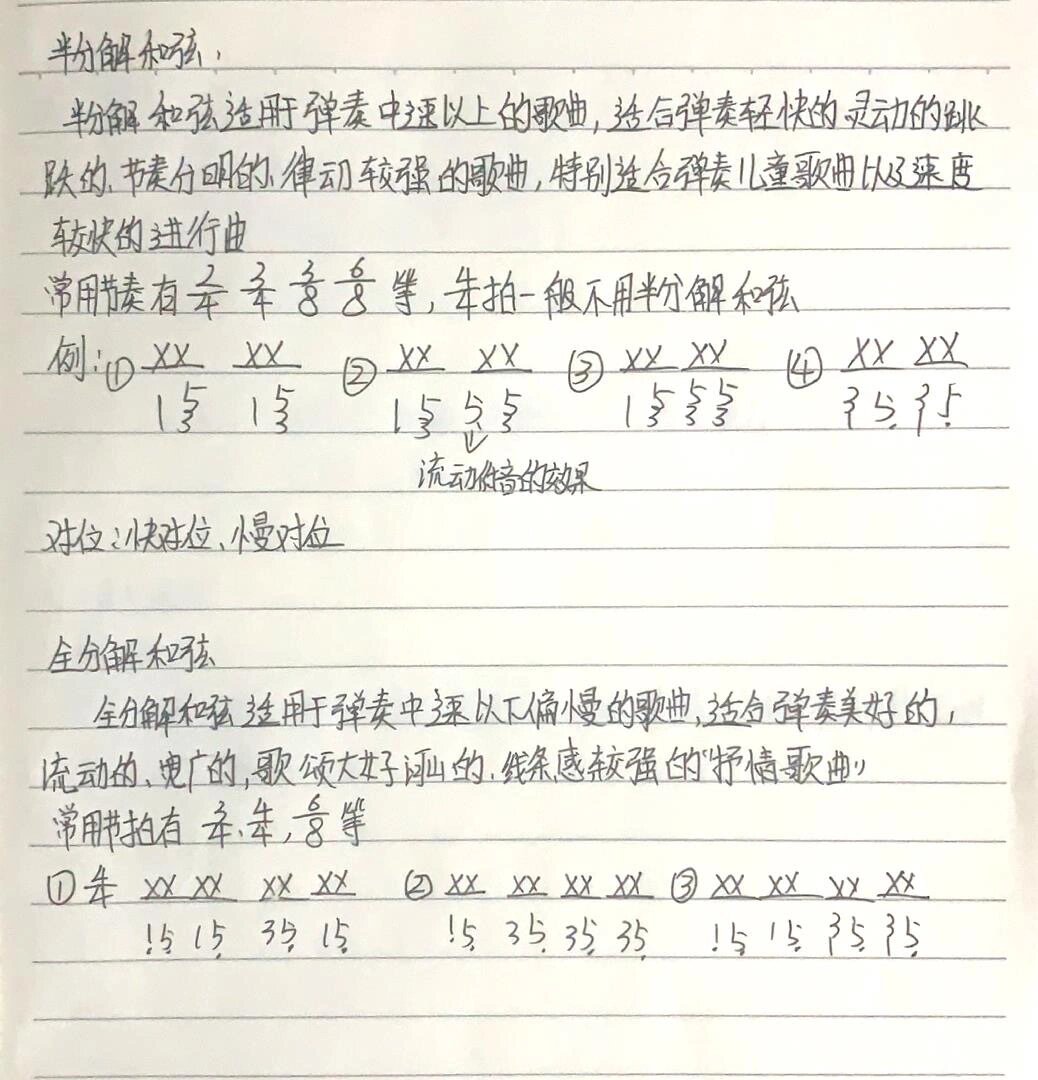 半分解和弦,
半分解和弦适用于弹奏中速以上的歌曲,适合弹奏轻快的灵动的跳
跃的、节奏分明的、律动较强的歌曲,特别适合弹奏儿童歌曲以及速度
较快的进行曲
常用节奏有 2/4 3/4 3/8 6/8 等, 4/4拍一般不用半分解和弦
例: ① XX XX ② XX XX ③ XX XX ④ XX XX
1 5/3 1 5/3 1 5/3 5 5/3 1 5/3 5/3 5/3 3 5̣ 3 5
流动低音的效果
对位:快对位、慢对位
全分解和弦
全分解和弦适用于弹奏中速以下偏慢的歌曲,适合弹奏美好的,
流动的、宽广的,歌颂大好河山的、线条感较强的“抒情歌曲”
常用节拍有 3/4、4/4, 6/8 等
① 4/4 XX XX XX XX ② XX XX XX XX ③ XX XX XX XX
1̣5̣ 15̣ 35̣ 15̣ 1̣5̣ 35̣ 35̣ 35̣ 1̣5̣ 15̣ 35̣ 35̣